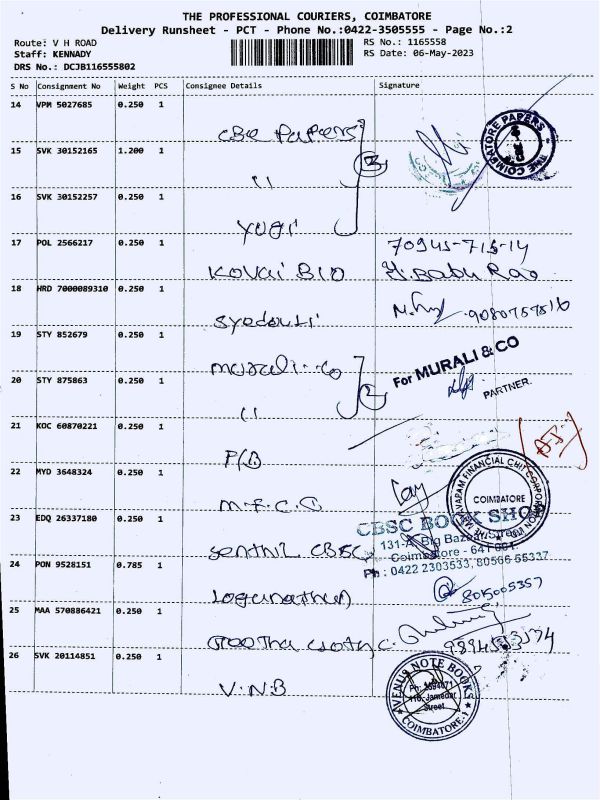 THE PROFESSIONAL COURIERS, COIMBATORE
Delivery Runsheet - PCT - Phone No.:0422-3505555 - Page No.:2
Route: V H ROAD
Staff: KENNADY
DRS No.: DCJB116555802
RS No.: 1165558
RS Date: 06-May-2023
S No Consignment No Weight PCS Consignee Details Signature
14 VPM 5027685 0.250 1
CBE PAPERS
THE COIMBATORE PAPERS
15 SVK 30152165 1.200 1
"
3
16 SVK 30152257 0.250 1
yugi
17 POL 2566217 0.250 1
70945-715-14
KOVAI BIO
H. Babu Rao
18 HRD 7000089310 0.250 1
19 STY 852679 0.250 1
murali - co
For MURALI & CO
PARTNER.
20 STY 875863 0.250 1
"
2
21 KOC 60870221 0.250 1
22 MYD 3648324 0.250 1
M.F.C.C
COIMBATORE
23 EDQ 26337180 0.250 1
CBSC BOOK SHOP
Senthil CBSC
131-A, Big Bazaar Street
Coimbatore - 641 001.
Ph : 0422 2303533, 80566 55337
24 PON 9528151 0.785 1
Logunathan
8015005357
25 MAA 570886421 0.250 1
26 SVK 20114851 0.250 1
V.N.B
VENUS NOTE BOOKS
Street
COIMBATORE-1